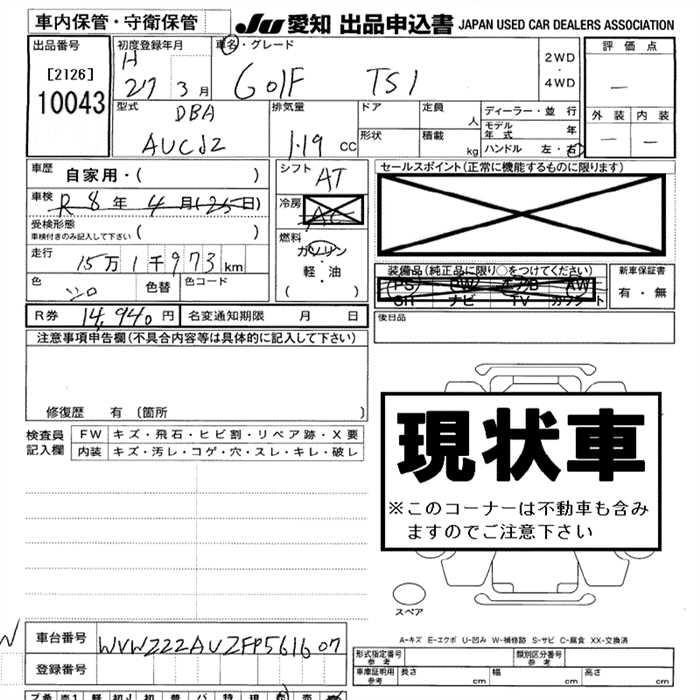 車内保管・守衛保管
JU 愛知 出品申込書 JAPAN USED CAR DEALERS ASSOCIATION
出品番号
[2126]
10043
初度登録年月
H
27 3月
車名・グレード
Golf TSI
2WD
・
4WD
評価点
—
外装 内装
— —
型式
DBA
AUCJZ
排気量
1.19 cc
ドア
定員 人
形状
積載 kg
ディーラー・並行
モデル年式 年
ハンドル 左・右
車歴 自家用・( )
車検 R 8年 4月(25日)
受検形態
車検付きのみ記入して下さい ( )
走行 15万1千973km
色 シロ
色替
色コード
シフト AT
冷房 AC
燃料
ガソリン
・
軽・油
( )
セールスポイント(正常に機能するものに限ります)
装備品(純正品に限り○をつけてください)
PS PW エアB AW
SR ナビ TV カワシート
新車保証書
有・無
R券 14,940円
名変通知期限 月 日
後日品
注意事項申告欄(不具合内容等は具体的に記入して下さい)
修復歴 有 〔箇所 〕
検査員
記入欄
FW キズ・飛石・ヒビ割・リペア跡・X要
内装 キズ・汚レ・コゲ・穴・スレ・キレ・破レ
現状車
※このコーナーは不動車も含み
ますのでご注意下さい
スペア
A-キズ E-エクボ U-凹み W-補修跡 S-サビ C-腐食 XX-交換済
車台番号 WVWZZZAUZFP561607
登録番号
形式指定番号
参考
類別区分番号
参考
車庫証明用
参考
長さ cm
幅 cm
高さ cm